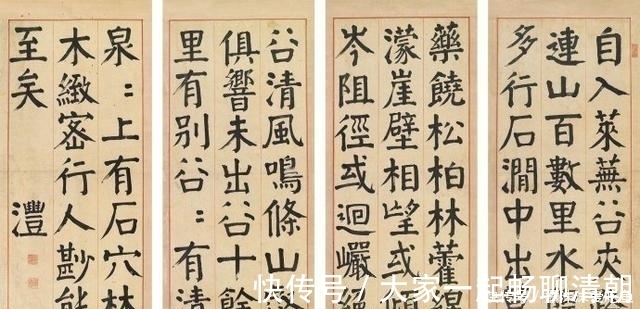 自入萊蕪谷夾
連山百數里水
多行石澗中出
藥饒松柏林藿綿
濛崖壁相望或傾
岑阻徑或迴巖絕
谷清風鳴條山
俱響未出谷十餘
里有別谷：有清
泉：上有石穴林
木緻密行人尠能
至矣
灃
快传号 / 大家一起畅聊清朝